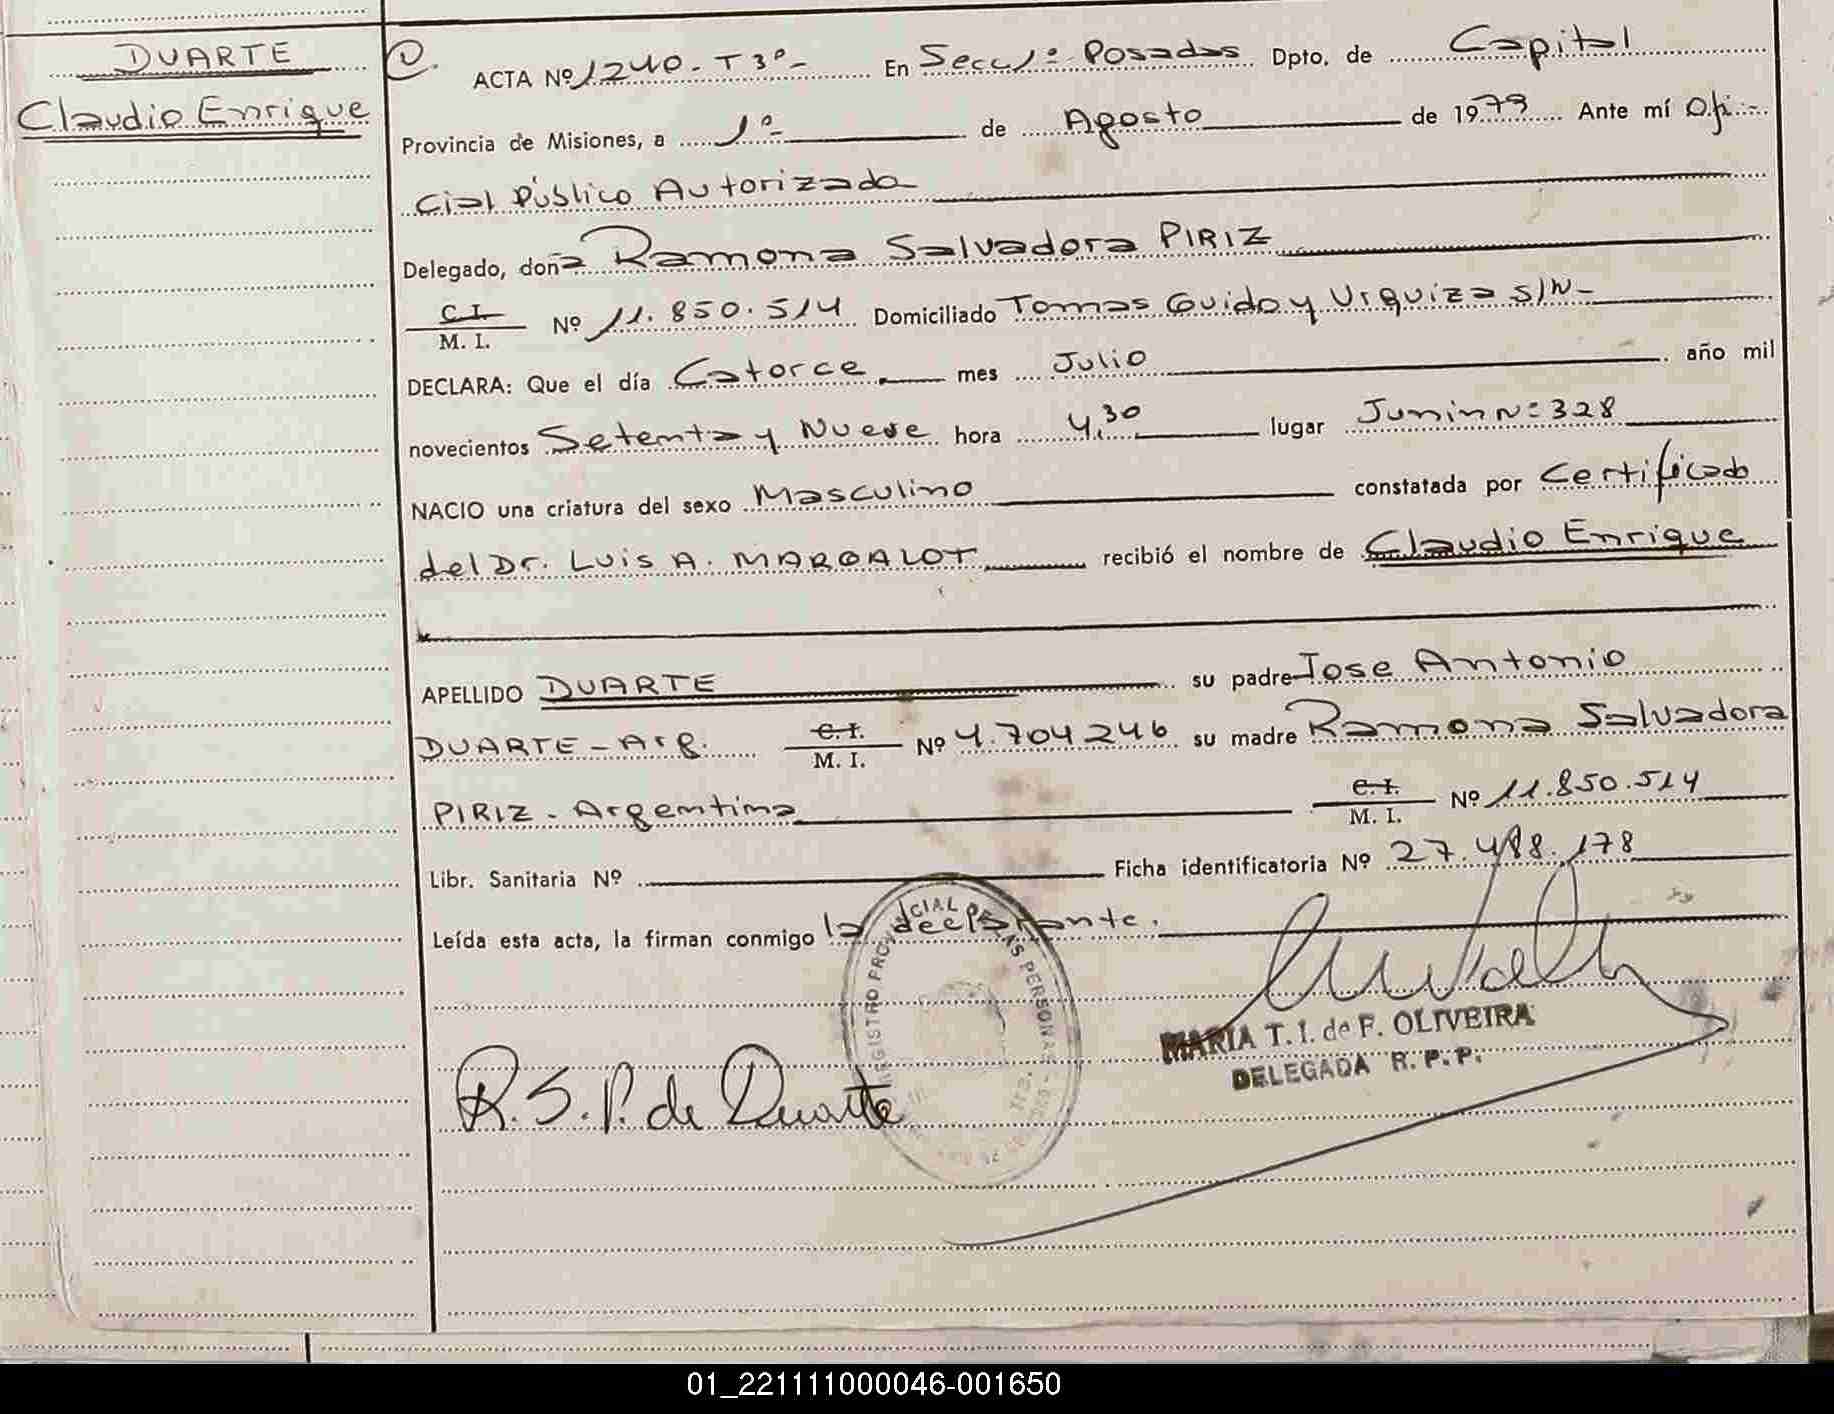 DUARTE
Claudio Enrique
ACTA Nº 1240 - T 3º - En Secc 1º Posadas Dpto. de Capital
Provincia de Misiones, a 1º de Agosto de 1979 Ante mí Ofi-
cial Público Autorizado
Delegado, doña Ramona Salvadora PIRIZ
C.I.
M. I. Nº 11.850.514 Domiciliado Tomas Guido y Urquiza S/N-
DECLARA: Que el día Catorce mes Julio año mil
novecientos Setenta y Nueve hora 4,30 lugar Junin Nº 328
NACIO una criatura del sexo Masculino constatada por Certificado
del Dr. Luis A. MARGALOT recibió el nombre de Claudio Enrique
APELLIDO DUARTE su padre Jose Antonio
DUARTE - Arg. C.I. M. I. Nº 4.704.246 su madre Ramona Salvadora
PIRIZ - Argentina C.I. M. I. Nº 11.850.514
Libr. Sanitaria Nº Ficha identificatoria Nº 27.488.178
Leída esta acta, la firman conmigo la declarante.
REGISTRO PROVINCIAL DE LAS PERSONAS
MARIA T. I. de F. OLIVEIRA
DELEGADA R. P. P.
R. S. P. de Duarte
01_221111000046-001650